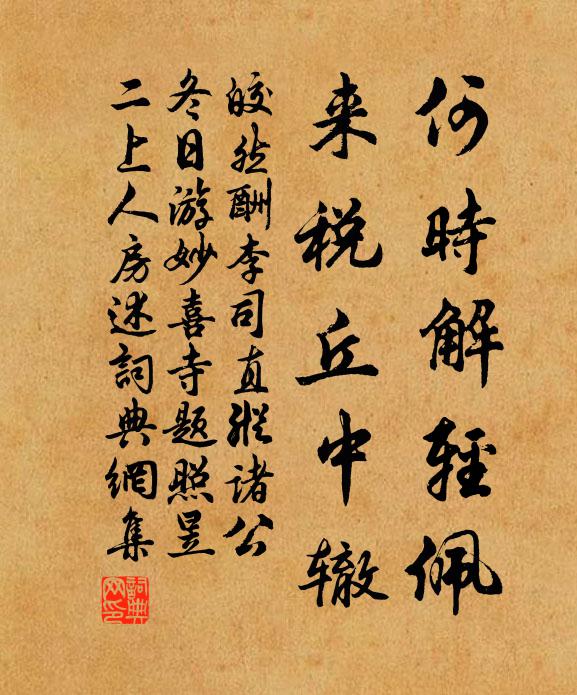 何時解輕佩
来税丘中辙
皎然酬李司直縱諸公
冬日游妙喜寺題照昱
二上人房述詞典網集
詞典網印